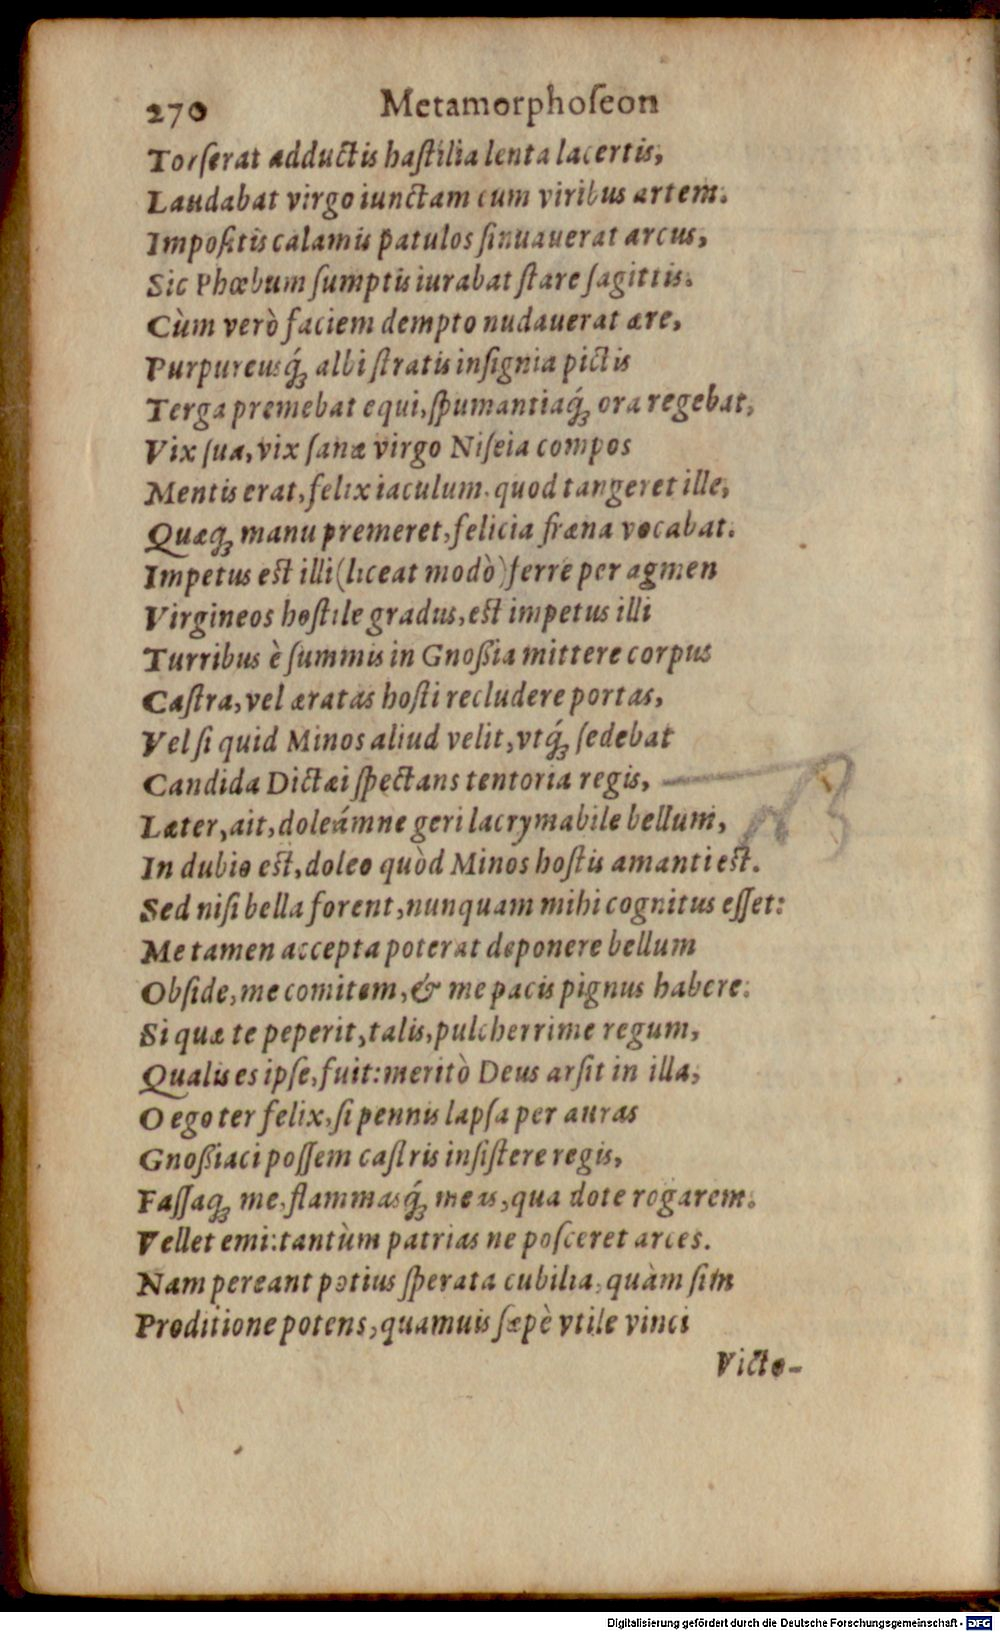 270 Metamorphoſeon
Torſerat adductis haſtilia lenta lacertis,
Laudabat virgo iunctam cum viribus artem.
Impoſitis calamis patulos ſinuauerat arcus,
Sic Phœbum ſumptis iurabat ſtare ſagittis.
Cùm verò faciem dempto nudauerat ære,
Purpureusq́ꝫ albi ſtratis inſignia pictis
Terga premebat equi, ſpumantiaq́ꝫ ora regebat,
Vix ſua, vix ſanæ virgo Niſeia compos
Mentis erat, felix iaculum. quod tangeret ille,
Quæqꝫ manu premeret, felicia fræna vocabat.
Impetus est illi (liceat modò) ferre per agmen
Virgineos hoſtile gradus, est impetus illi
Turribus è ſummis in Gnoßia mittere corpus
Caſtra, vel æratas hoſti recludere portas,
Vel ſi quid Minos aliud velit, vtq́ꝫ ſedebat
Candida Dictæi ſpectans tentoria regis,
Læter, ait, doleámne geri lacrymabile bellum,
In dubio est, doleo quòd Minos hoſtis amanti est.
Sed niſi bella forent, nunquam mihi cognitus eſſet:
Me tamen accepta poterat deponere bellum
Obſide, me comitem, & me pacis pignus habere.
Si quæ te peperit, talis, pulcherrime regum,
Qualis es ipſe, fuit: meritò Deus arſit in illa,
O ego ter felix, ſi pennis lapſa per auras
Gnoßiaci poſſem caſtris inſiſtere regis,
Faſſaqꝫ me, flammasq́ꝫ meas, qua dote rogarem.
Vellet emi: tantùm patrias ne poſceret arces.
Nam pereant potius ſperata cubilia, quàm ſim
Proditione potens, quamuis ſæpè vtile vinci
Victo-
Digitalisierung gefördert durch die Deutsche Forschungsgemeinschaft - DFG